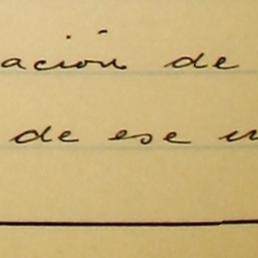 ación de
de ese